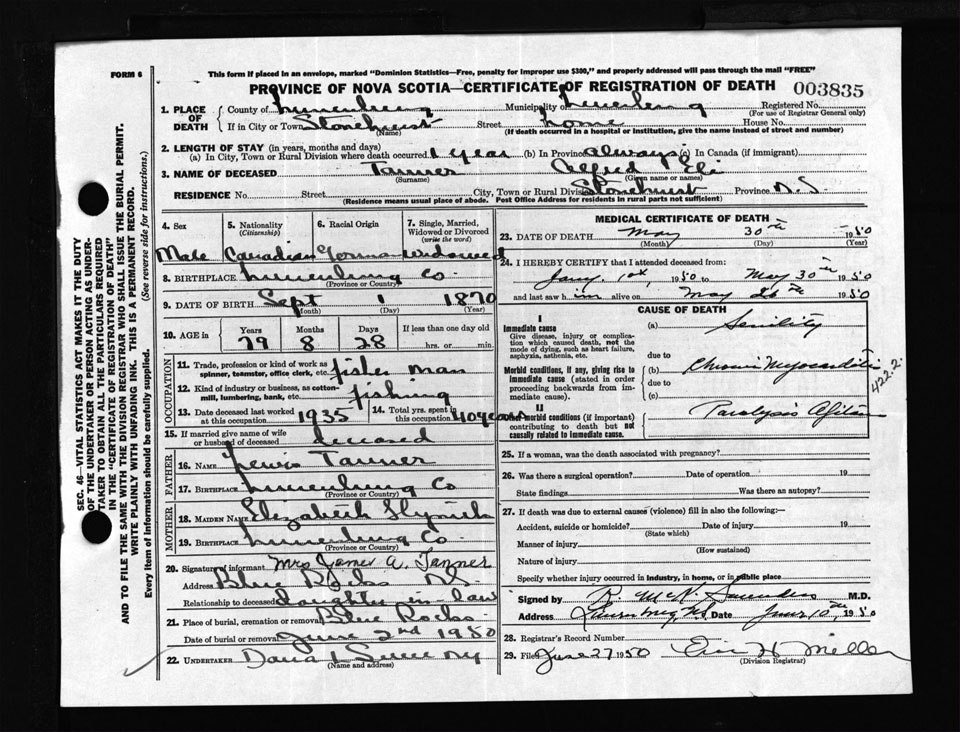 FORM 6
This form if placed in an envelope, marked "Dominion Statistics—Free, penalty for improper use $300," and properly addressed will pass through the mail "FREE"
PROVINCE OF NOVA SCOTIA—CERTIFICATE OF REGISTRATION OF DEATH 003835
1. PLACE OF DEATH County of Lunenburg Municipality of Lunenburg Registered No.
(For use of Registrar General only)
If in City or Town Stonehurst Street home House No.
(Name) (If death occurred in a hospital or institution, give the name instead of street and number)
2. LENGTH OF STAY (in years, months and days)
(a) In City, Town or Rural Division where death occurred 1 year (b) In Province always (c) In Canada (if immigrant)
3. NAME OF DECEASED Tanner Alfred Eli
(Surname) (Given name or names)
RESIDENCE No. Street City, Town or Rural Division Stonehurst Province N.S.
(Residence means usual place of abode. Post Office Address for residents in rural parts not sufficient)
4. Sex 5. Nationality (Citizenship) 6. Racial Origin 7. Single, Married, Widowed or Divorced (write the word)
Male Canadian German Widowed
8. BIRTHPLACE Lunenburg Co
(Province or Country)
9. DATE OF BIRTH Sept 1 1870
(Month) (Day) (Year)
10. AGE in Years Months Days If less than one day old
79 8 28 hrs. or min.
OCCUPATION
11. Trade, profession or kind of work as spinner, teamster, office clerk, etc. fisher man
12. Kind of industry or business, as cotton-mill, lumbering, bank, etc. fishing
13. Date deceased last worked at this occupation 1935 14. Total yrs. spent in this occupation 40 years
15. If married give name of wife or husband of deceased deceased
FATHER
16. NAME Lewis Tanner
17. BIRTHPLACE Lunenburg Co
(Province or Country)
MOTHER
18. MAIDEN NAME Elizabeth
19. BIRTHPLACE Lunenburg Co
(Province or Country)
20. Signature of informant Mrs James A. Tanner
Address Blue Rocks N.S.
Relationship to deceased daughter-in-law
21. Place of burial, cremation or removal Blue Rocks
Date of burial or removal June 2nd 1950
22. UNDERTAKER
(Name and address)
MEDICAL CERTIFICATE OF DEATH
23. DATE OF DEATH May 30th 1950
(Month) (Day) (Year)
24. I HEREBY CERTIFY that I attended deceased from
Jany. 1st, 1950 to May 30th 1950
and last saw him alive on May 26th 1950
CAUSE OF DEATH
I
Immediate cause
Give disease, injury or complication which caused death, not the mode of dying, such as heart failure, asphyxia, asthenia, etc.
(a) Senility
due to
Morbid conditions, if any, giving rise to immediate cause (stated in order proceeding backwards from immediate cause).
(b) Chronic Myocarditis
due to
(c)
422.2
II
Other morbid conditions (if important) contributing to death but not causally related to immediate cause.
Paralysis Agitans
25. If a woman, was the death associated with pregnancy?
26. Was there a surgical operation? Date of operation 19
State findings Was there an autopsy?
27. If death was due to external causes (violence) fill in also the following:—
Accident, suicide or homicide? Date of injury 19
(State which)
Manner of injury
(How sustained)
Nature of injury
Specify whether injury occurred in industry, in home, or in public place
Signed by R. McK. Saunders M.D.
Address Lunenburg, N.S. Date June 10th 1950
28. Registrar's Record Number
29. Filed June 27 1950
(Division Registrar)
SEC. 46—VITAL STATISTICS ACT MAKES IT THE DUTY
OF THE UNDERTAKER OR PERSON ACTING AS UNDER-
TAKER TO OBTAIN ALL THE PARTICULARS REQUIRED
IN THE "CERTIFICATE OF REGISTRATION OF DEATH"
AND TO FILE THE SAME WITH THE DIVISION REGISTRAR WHO SHALL ISSUE THE BURIAL PERMIT.
WRITE PLAINLY WITH UNFADING INK. THIS IS A PERMANENT RECORD.
Every item of information should be carefully supplied. (See reverse side for instructions.)